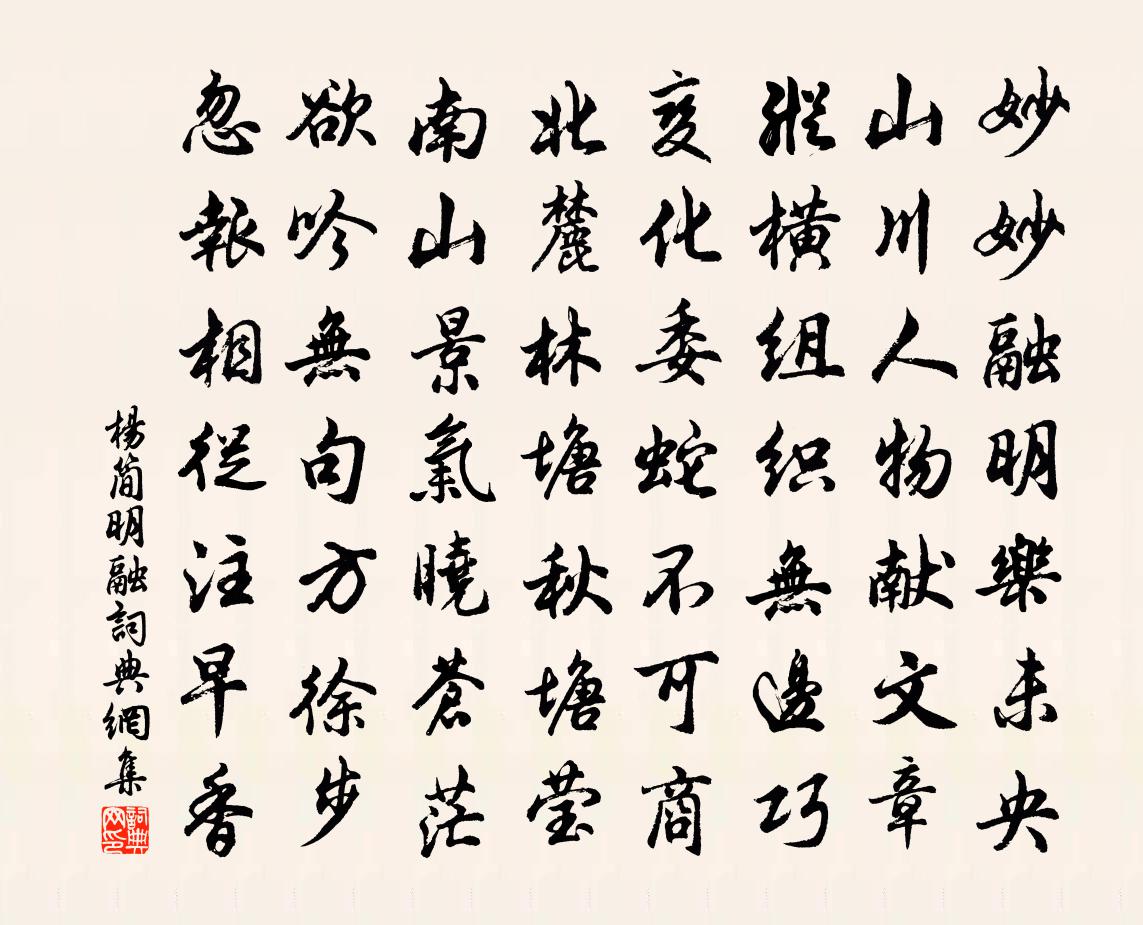 妙妙融明樂未央
山川人物献文章
縱橫组织無邊巧
变化委蛇不可商
北麓林塘秋塘莹
南山景氣曉蒼茫
欲吟無句方徐步
忽報相從注早香
楊简明融詞典網集
詞典网印